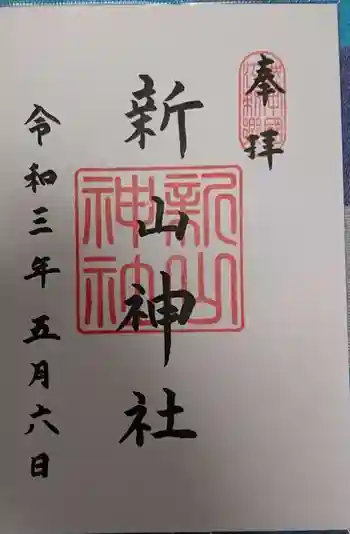 奉拝
新山神社
新山神社
令和三年五月六日